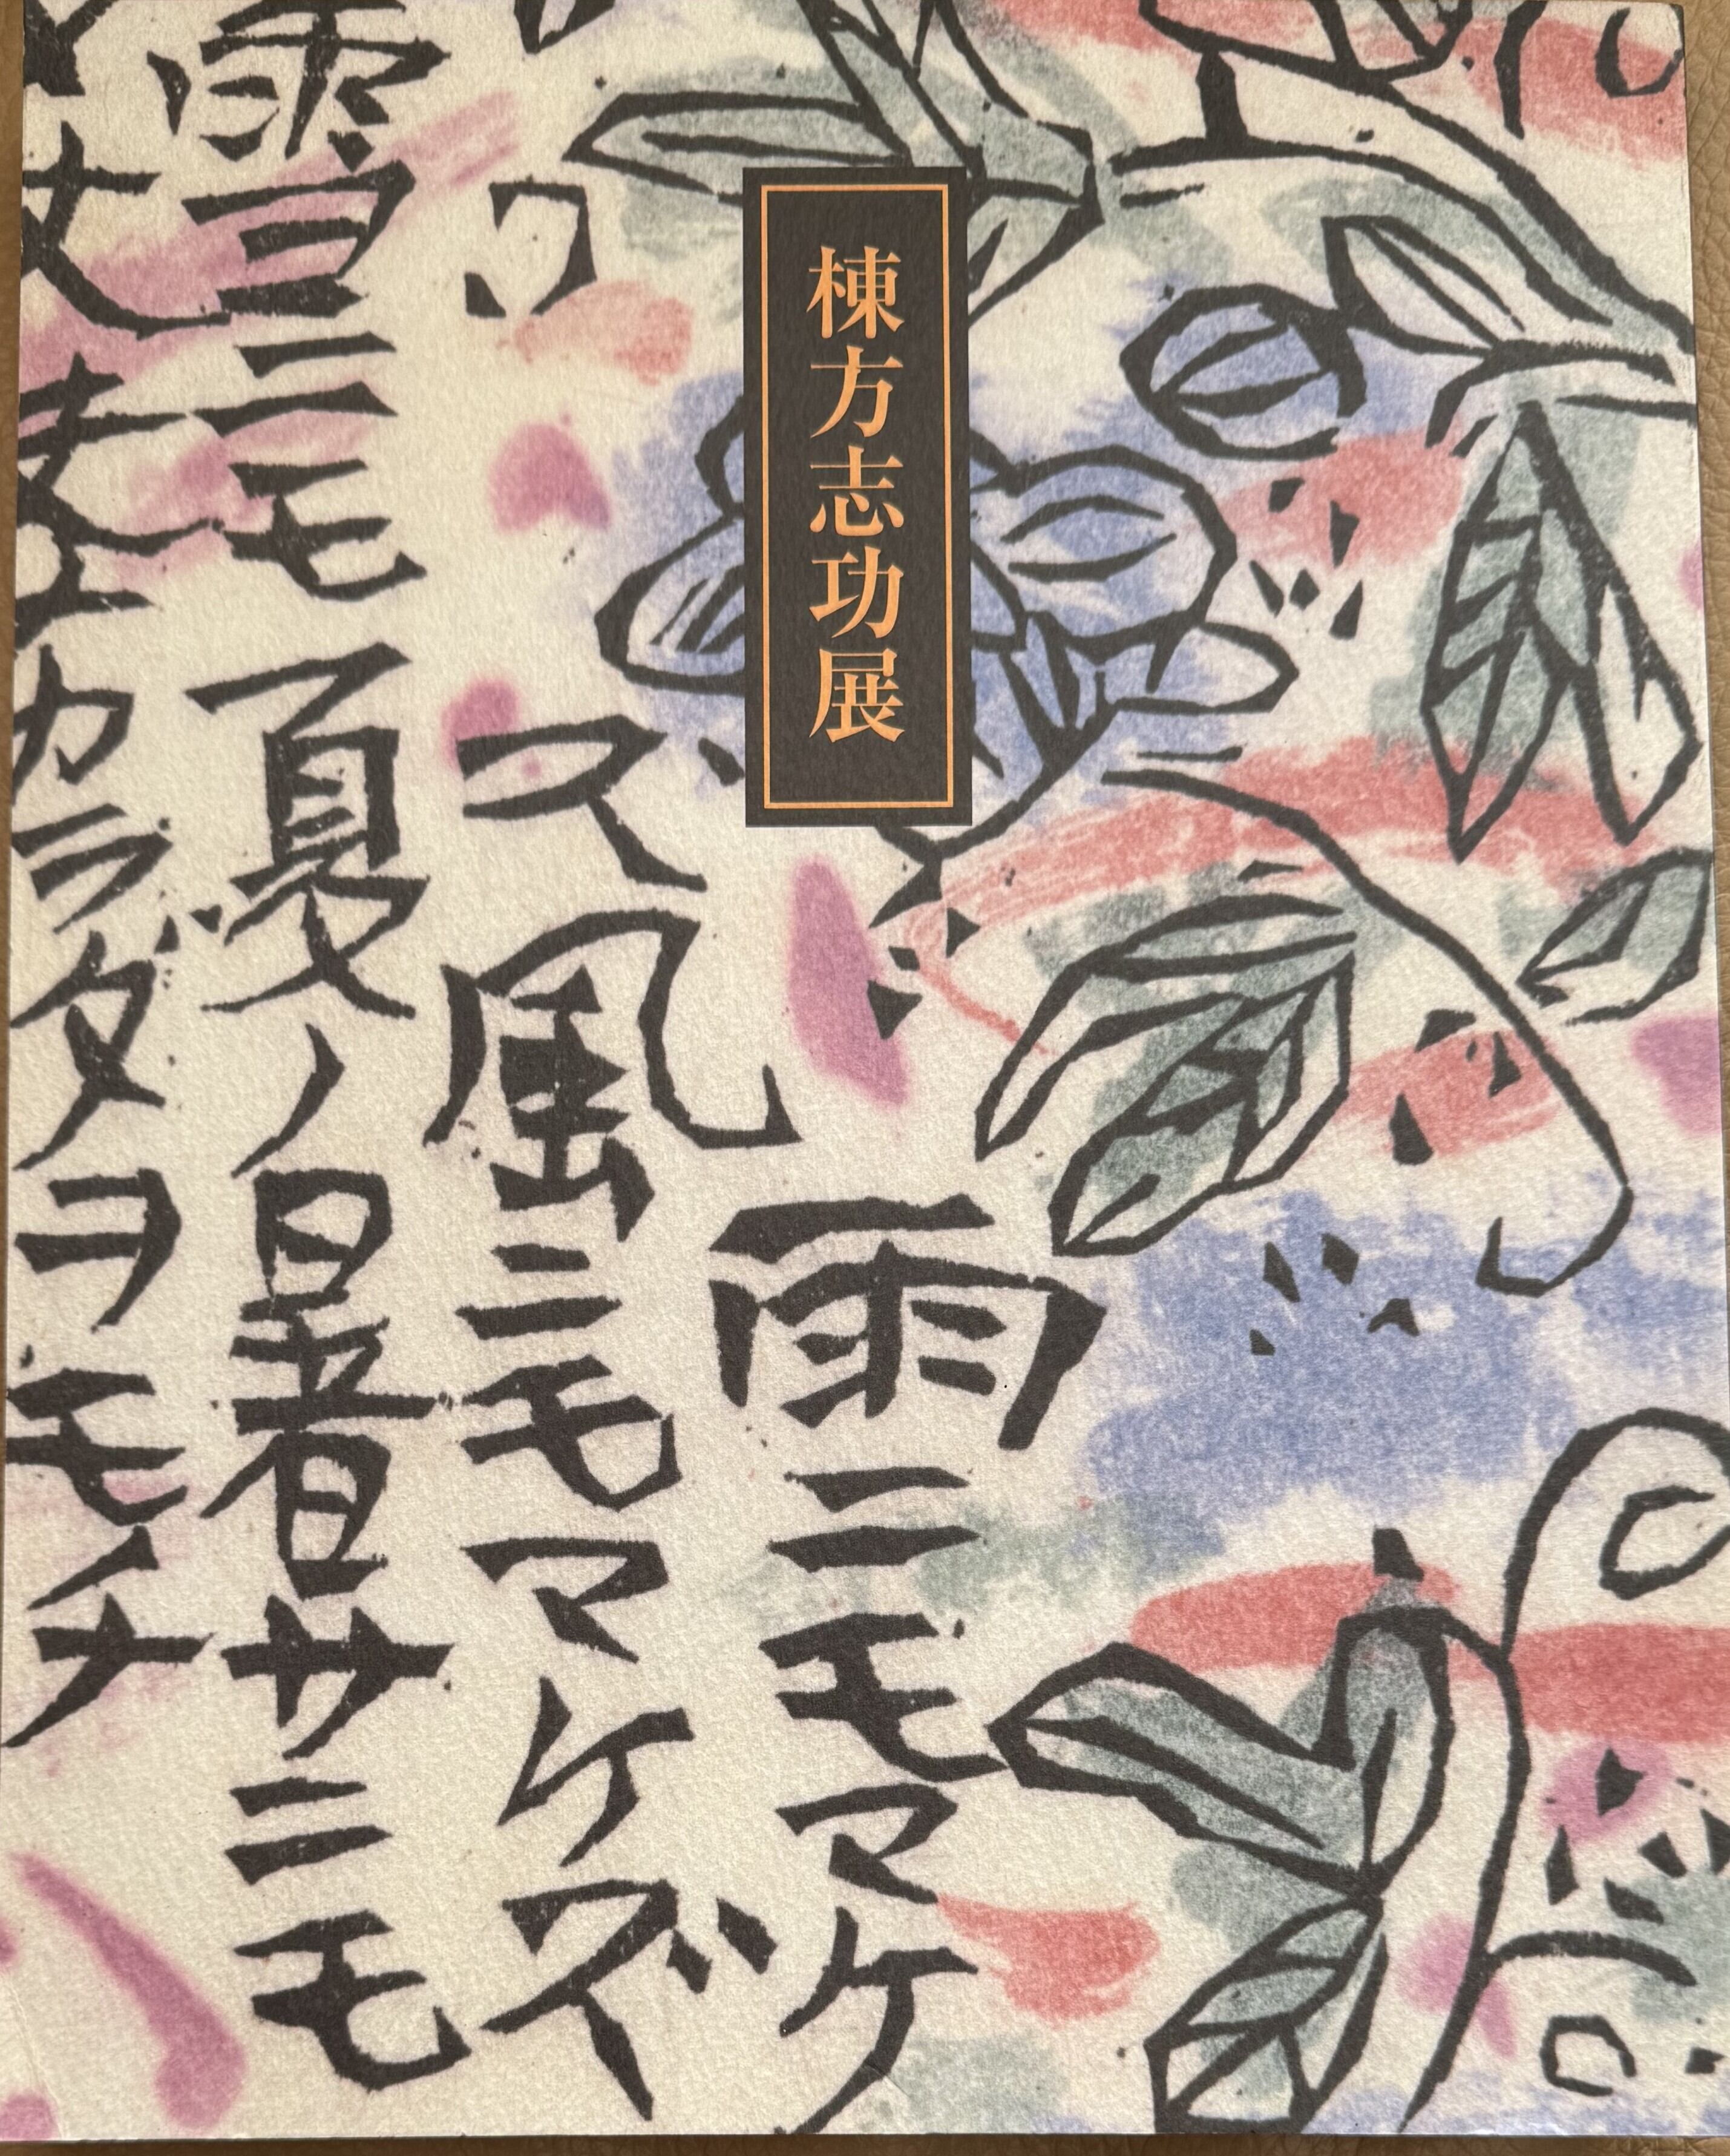 棟方志功展
雨ニモマケ
ズ風ニモマケズ
雪ニモ夏ノ暑サニモ
丈
カラダヲモチ